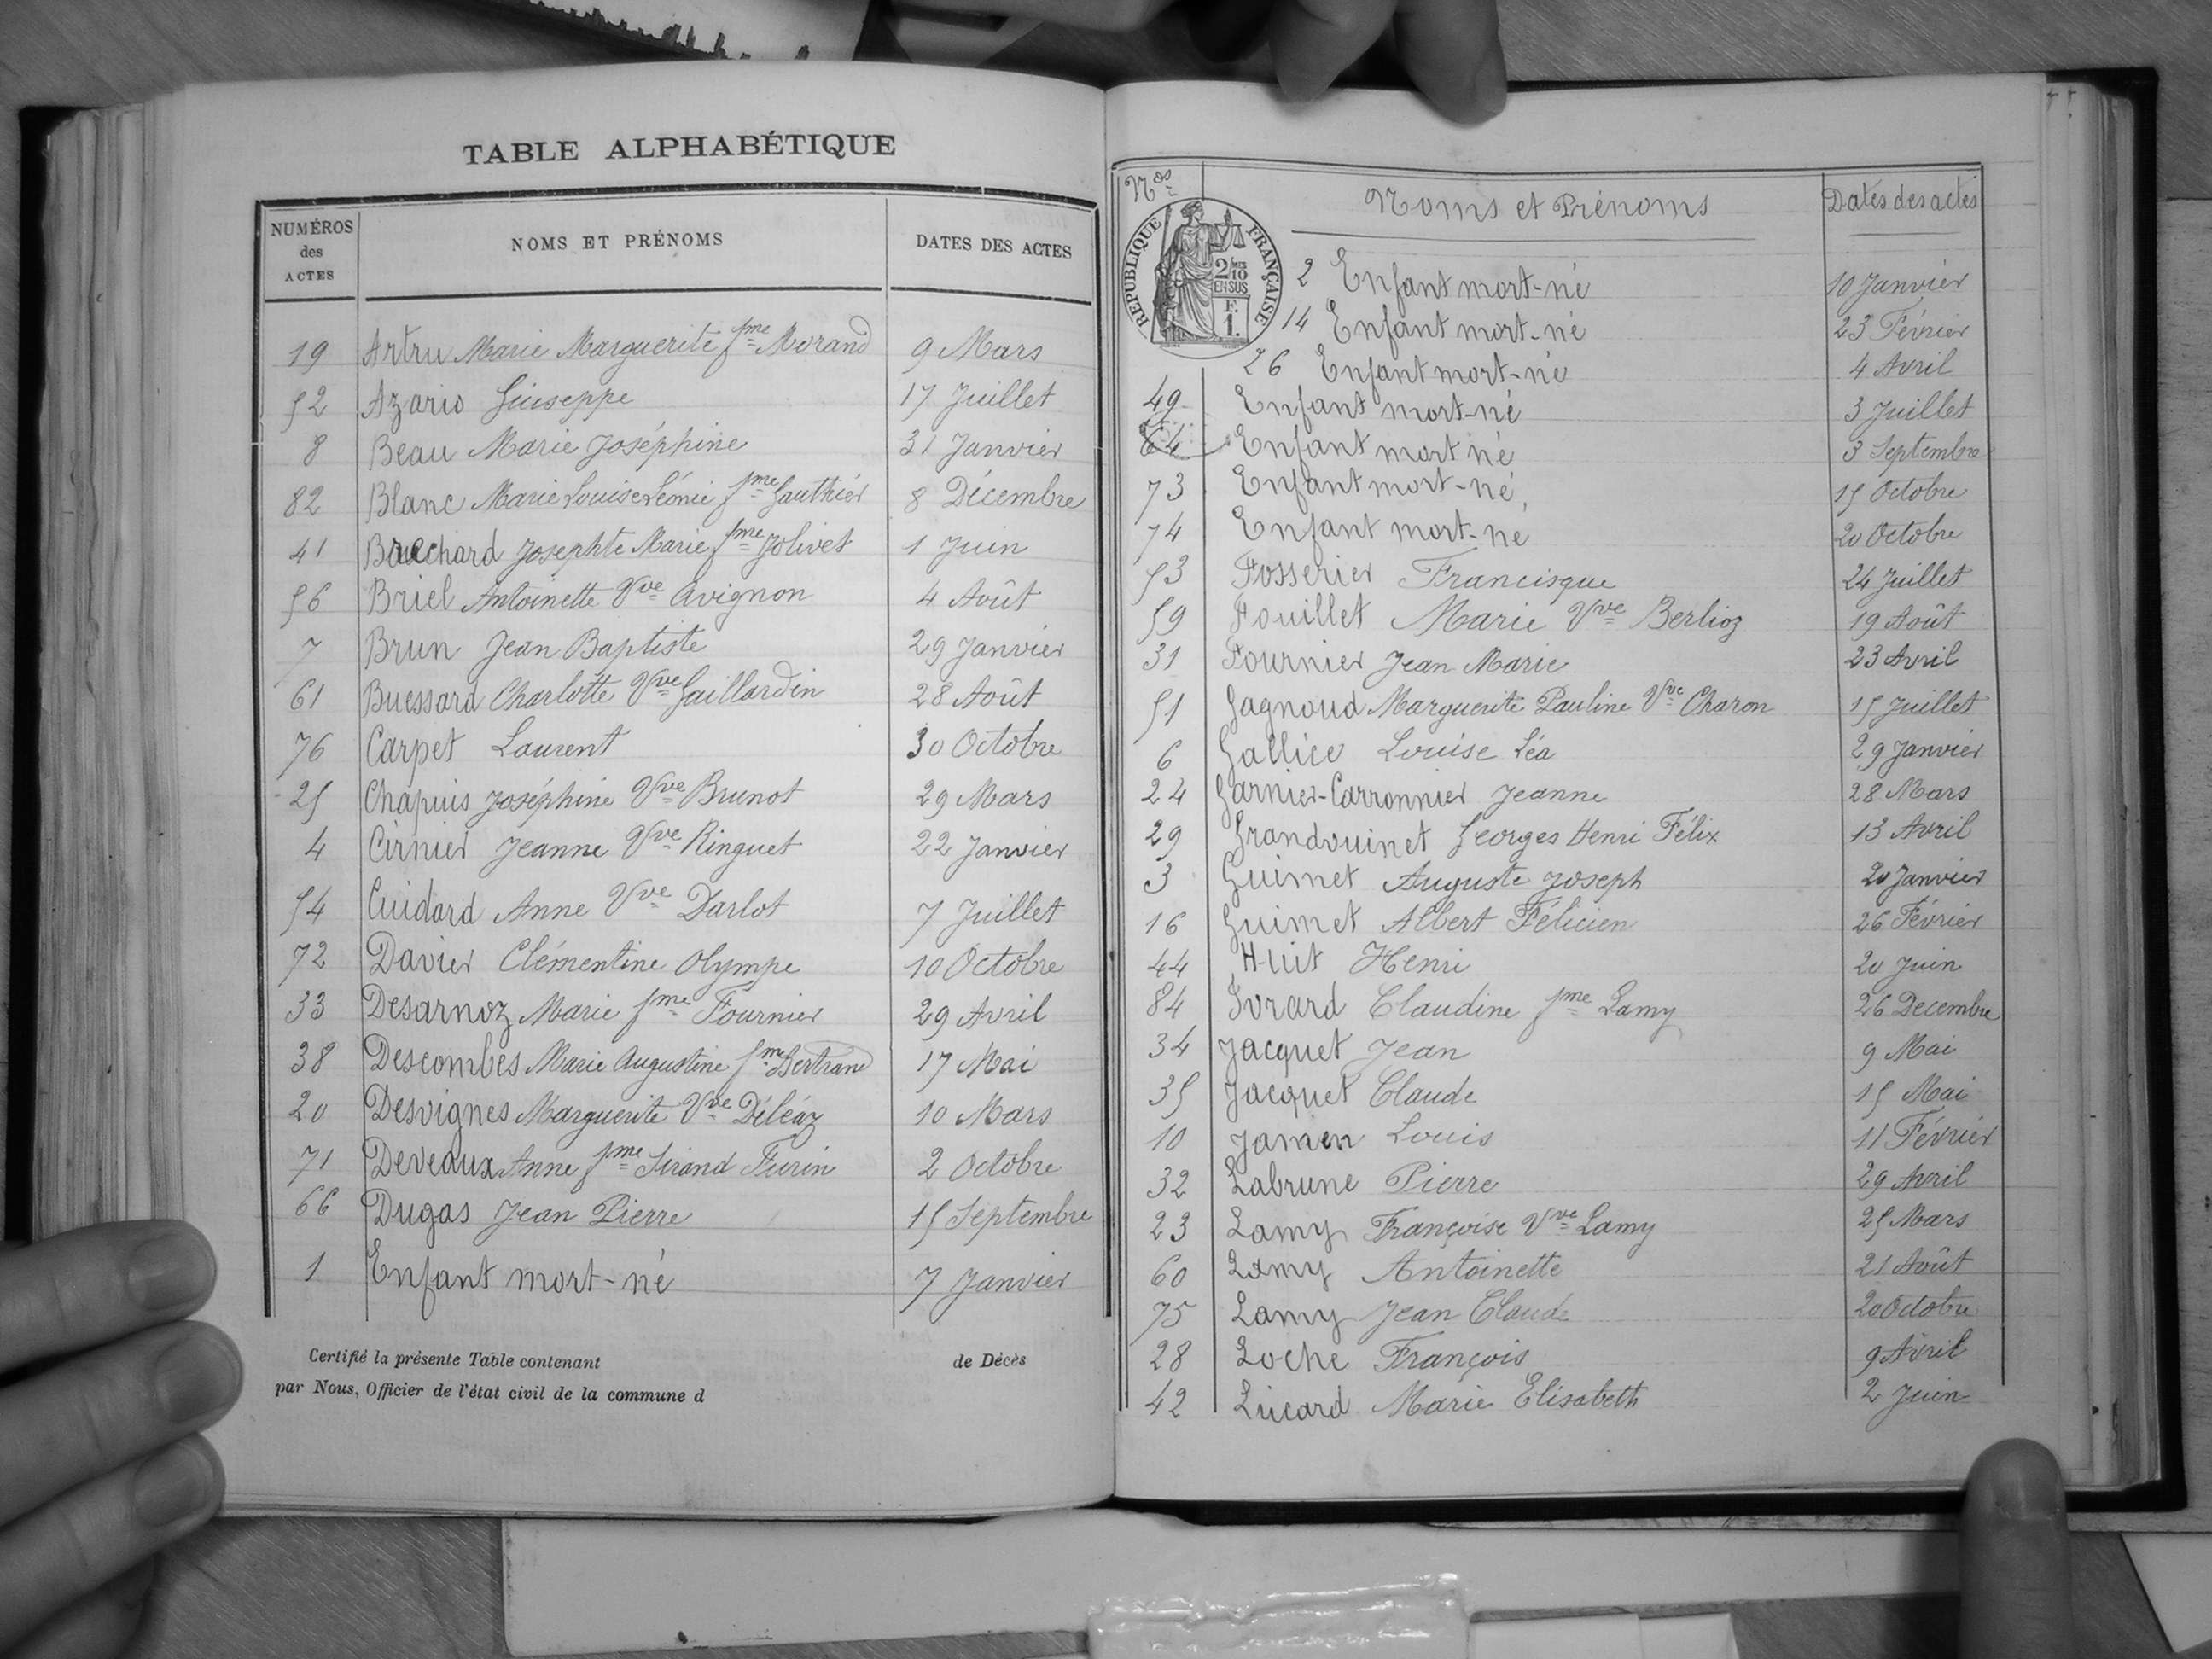 TABLE ALPHABÉTIQUE
NUMÉROS des ACTES NOMS ET PRÉNOMS DATES DES ACTES
19 Artru Marie Marguerite fme Morand 9 Mars
52 Azario Giuseppe 17 Juillet
8 Beau Marie Joséphine 31 Janvier
82 Blanc Marie Louise Léonie fme Gauthier 8 Décembre
41 Josephte Marie fme Jolivet 1 Juin
56 Briel Antoinette Vve Avignon 4 Août
7 Brun Jean Baptiste 29 Janvier
61 Buessard Charlotte Vve Gaillardin 28 Août
76 Carpet Laurent 30 Octobre
25 Chapuis Joséphine Vve Brunot 29 Mars
4 Cirnier Jeanne Vve Ringuet 22 Janvier
54 Cuidard Anne Vve Darlot 7 Juillet
72 Davier Clémentine Olympe 10 Octobre
33 Desarnoz Marie fme Fournier 29 Avril
38 Descombes Marie Augustine fme Bertrand 17 Mai
20 Desvignes Marguerite Vve Déléaz 10 Mars
71 Deveaux Anne fme Sirand Furin 2 Octobre
66 Dugas Jean Pierre 15 Septembre
1 Enfant mort-né 7 Janvier
Certifié la présente Table contenant de Décès
par Nous, Officier de l'état civil de la commune d
Nos Noms et Prénoms Dates des actes
RÉPUBLIQUE FRANÇAISE
2/10 EN SUS
F. 1.
2 Enfant mort-né 10 Janvier
14 Enfant mort-né 23 Février
26 Enfant mort-né 4 Avril
49 Enfant mort-né 3 Juillet
64 Enfant mort né 3 Septembre
73 Enfant mort-né 15 Octobre
74 Enfant mort-né 20 Octobre
53 Fosserier Francisque 24 Juillet
59 Fouillet Marie Vve Berlioz 19 Août
31 Fournier Jean Marie 23 Avril
51 Gagnoud Marguerite Pauline Vve Charon 15 Juillet
6 Gallice Louise Léa 29 Janvier
24 Garnier-Carronnier Jeanne 28 Mars
29 Grandouinet Georges Henri Félix 13 Avril
3 Guimet Auguste Joseph 20 Janvier
16 Guimet Albert Félicien 26 Février
44 Huit Henri 20 Juin
84 Ivrard Claudine fme Lamy 26 Decembre
34 Jacquet Jean 9 Mai
35 Jacquet Claude 15 Mai
10 Jamen Louis 11 Février
32 Labrune Pierre 29 Avril
23 Lamy Françoise Vve Lamy 25 Mars
60 Lamy Antoinette 21 Août
75 Lamy Jean Claude 20 Octobre
28 Loche François 9 Avril
42 Lucard Marie Elisabeth 2 Juin